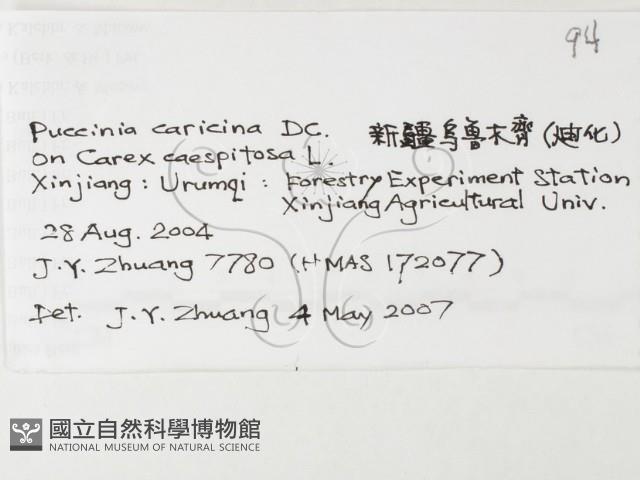 94
Puccinia caricina DC. 新疆烏魯木齊(迪化)
on Carex caespitosa L.
Xinjiang : Urumqi : Forestry Experiment Station
Xinjiang Agricultural Univ.
28 Aug. 2004
J.Y. Zhuang 7780 (HMAS 172077)
Det. J.Y. Zhuang 4 May 2007
國立自然科學博物館
NATIONAL MUSEUM OF NATURAL SCIENCE